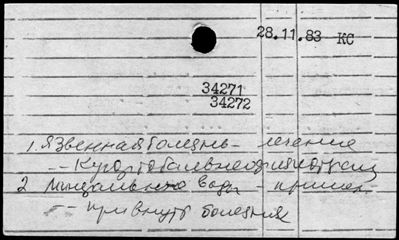 28.11.83 КС
34271
34272
1. Язвенная болезнь - лечение
-- Курортобальнеофизиотерап
2. Минеральные воды - примен.
-- при внутр болезнях